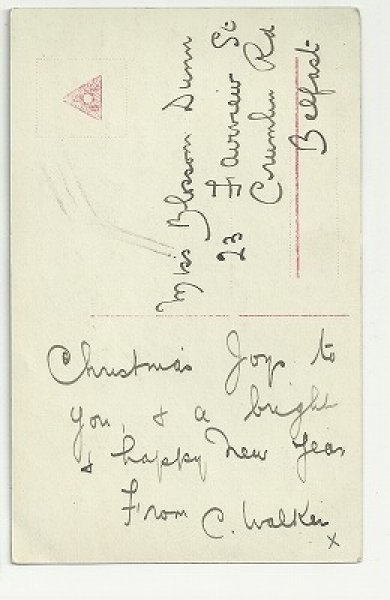 Miss Blossom Dunn
23 Fairview St
Crumlin Rd
Belfast
Christmas Joys to
you, & a bright
& happy New Year
From C. Walker
x